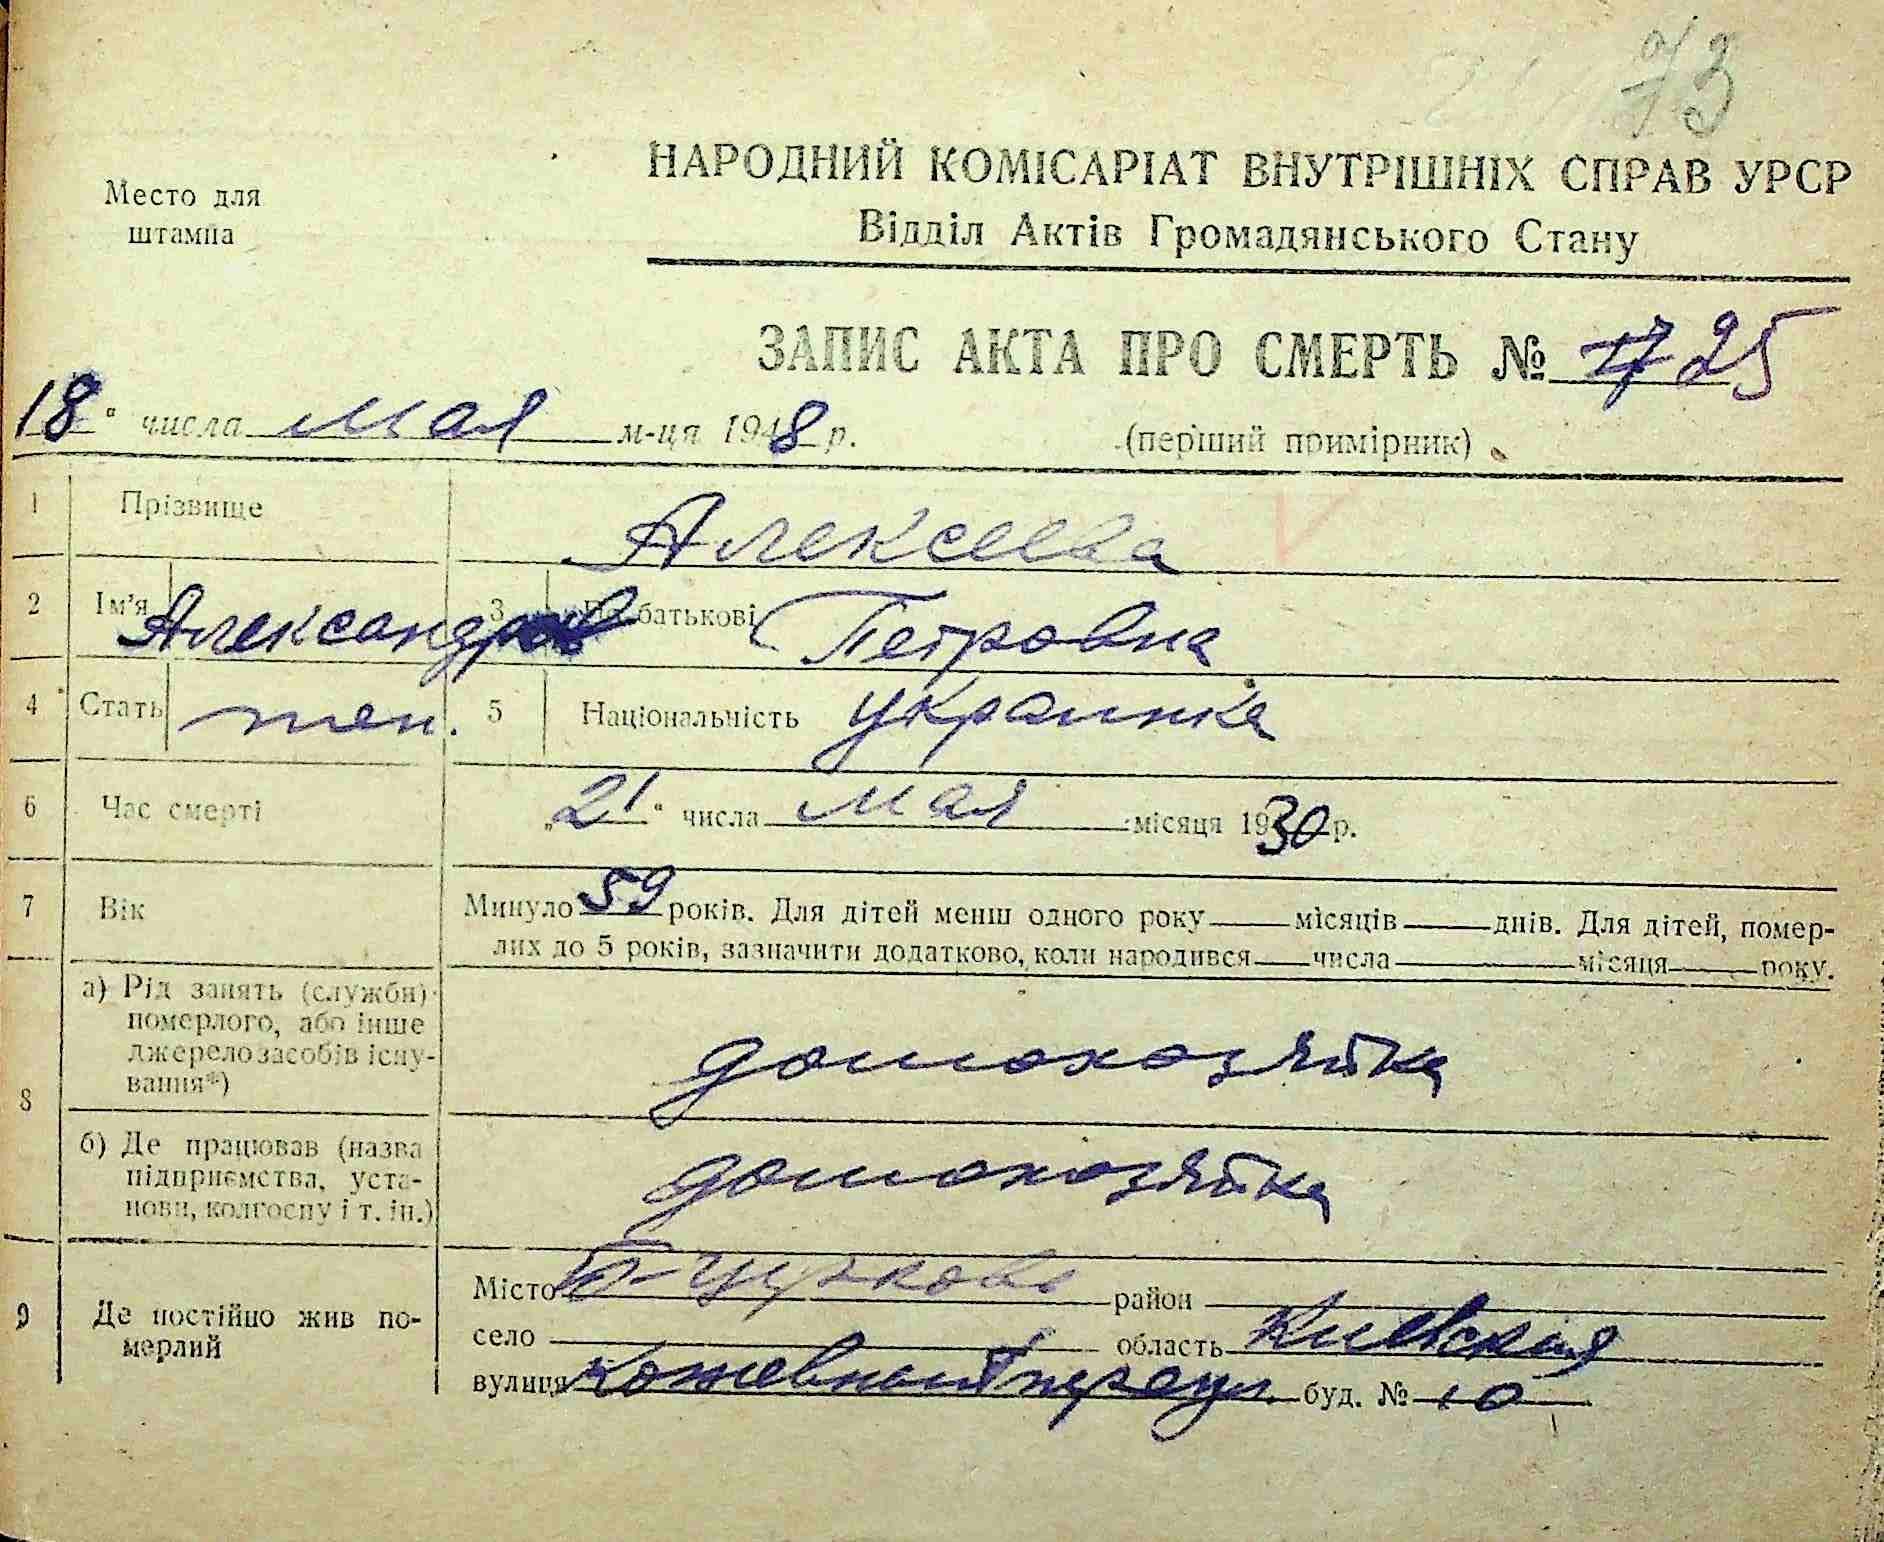 73
Место для
штампа
НАРОДНИЙ КОМІСАРІАТ ВНУТРІШНІХ СПРАВ УРСР
Відділ Актів Громадянського Стану
ЗАПИС АКТА ПРО СМЕРТЬ № 17 25
18" числа мая м-ця 1948 р.
(перший примірник)
1 Прізвище Алексеева
2 Ім'я Александра 3 По батькові Петровна
4 Стать жен. 5 Національність украинка
6 Час смерті „21" числа мая місяця 1930 р.
7 Вік Минуло 59 років. Для дітей менш одного року місяців днів. Для дітей, помер-
лих до 5 років, зазначити додатково, коли народився числа місяця року.
8 а) Рід занять (служби)
померлого, або інше
джерело засобів існу-
вання*)
домохозяйка
б) Де працював (назва
підприємства, уста-
нови, колгоспу і т. ін.)
домохозяйка
9 Де постійно жив по-
мерлий
Місто Б-Церковь район
село область Киевская
вулиця Кожевный переул. буд. № 10